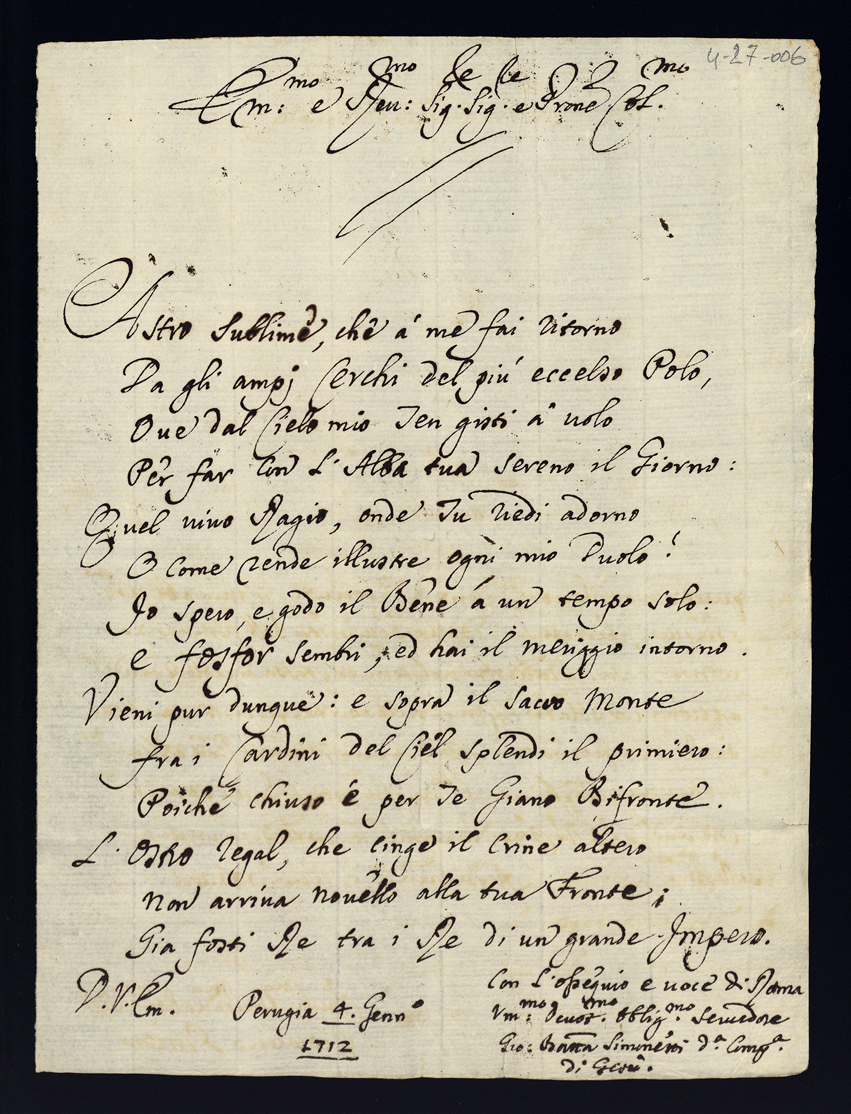 4-27-006
Em:mo e Reu:mo Sig.re Sig.re e Prone Col.mo
Astro sublime, che à me fai ritorno
Da gli ampj Cerchi del più eccelso Polo,
Oue dal Cielo mio Ten gisti à uolo
Per far con L'Alba tua sereno il Giorno:
Quel viuo Ragio, onde Tu riedi adorno
O come rende illustre ogni mio Duolo!
Io spero, e godo il Bene à un tempo solo:
E fosfor sembri, ed hai il meriggio intorno.
Vieni pur dunque: e sopra il sacro Monte
fra i Cardini del Ciel splendi il primiero:
Poiche chiuso è per Te Giano Bifronte.
L'Ostro regal, che cinge il crine altero
Non arriua nouello alla tua Fronte;
Gia fosti Re tra i Re di un grande Impero.
D.V.Em. Perugia 4. Genn.o
1712
Con L'ossequio e uoce di Roma
Vm:mo Deuot.mo Oblig.mo Seruidore
Gio: Batta Simonetti d.a Comp.a
di Giesù.